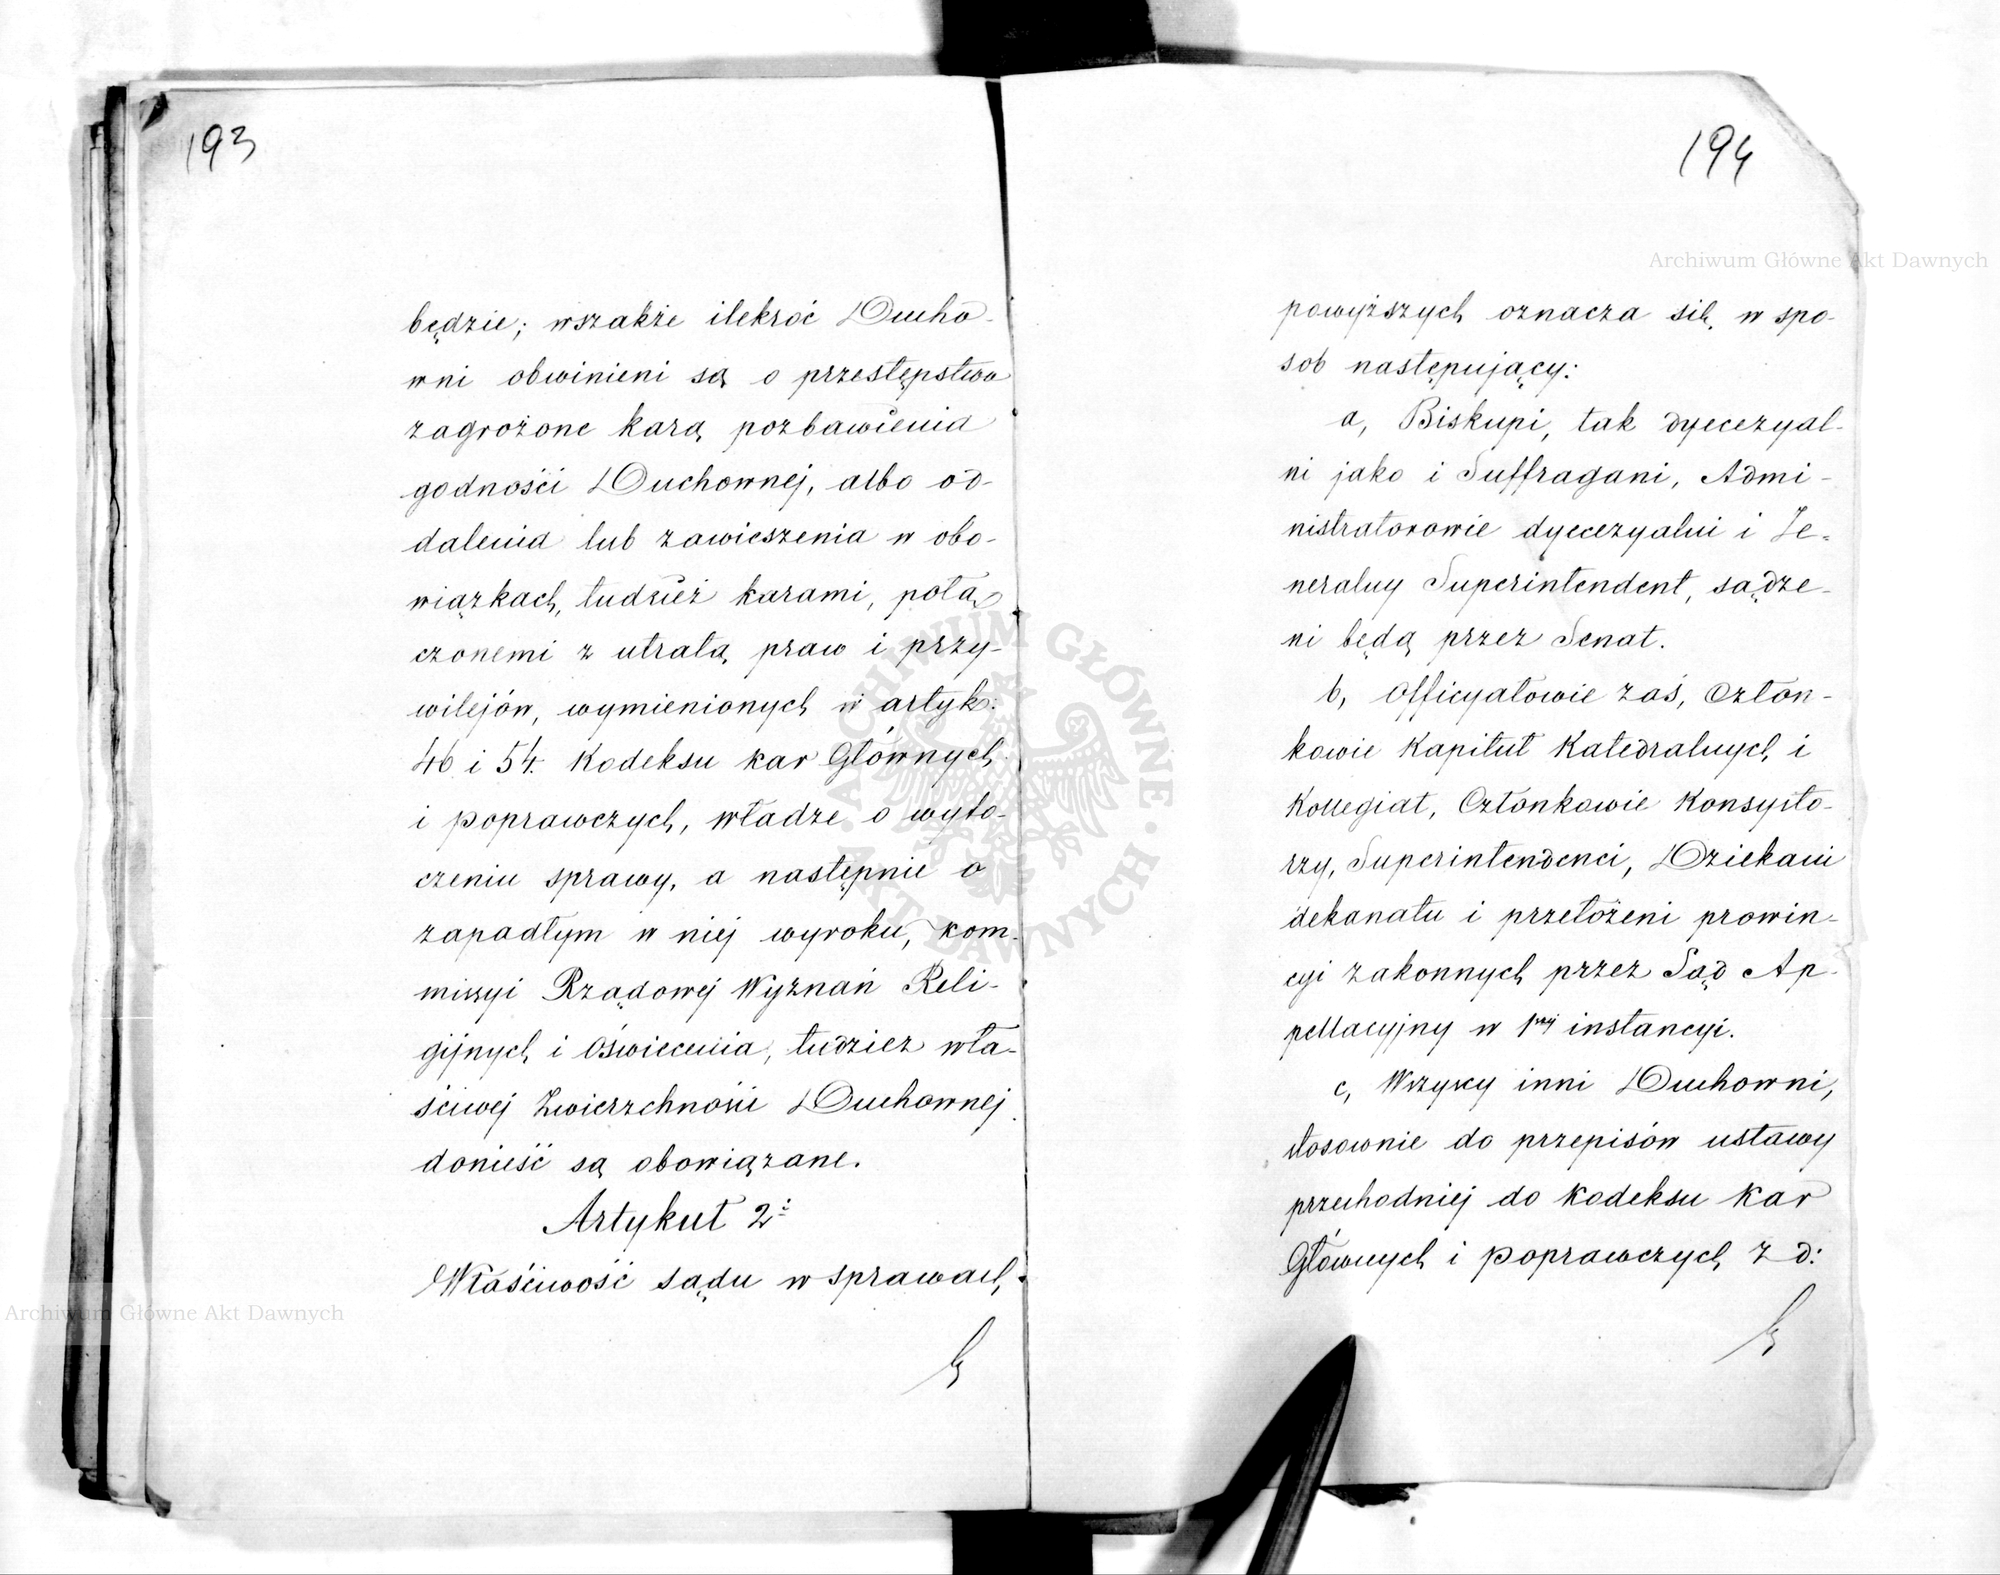 193
będzie; wszakże ilekroć Ducho-
wni obwinieni są o przestępstwa
zagrożone karą pozbawienia
godności Duchownej, albo od-
dalenia lub zawieszenia w obo-
wiązkach, tudzież karami, połą-
czonemi z utratą praw i przy-
wilejów, wymienionych w artyk:
46 i 54. Kodeksu kar Głównych
i poprawczych, władze o wyto-
czeniu sprawy, a następnie o
zapadłym w niej wyroku, Kom-
missyi Rządowej Wyznań Reli-
gijnych i Oświecenia, tudzież wła-
ściwej Zwierzchności Duchownej
donieść są obowiązane.
Artykuł 2i
Właściwość sądu w sprawach,
194
powyższych oznacza się, w spo-
sob następujący:
a, Biskupi, tak dyecezyal-
ni jako i Suffragani, Admi-
nistratorowie dyecezyalni i Je-
neralny Superintendent, sądze-
ni będą przez Senat.
b, Officyałowie zaś, Człon-
kowie Kapituł Katedralnych i
Kollegiat, Członkowie Konsysto-
rzy, Superintendenci, Dziekani
dekanatu i przełożeni prowin-
cyi zakonnych przez Sąd Ap-
pellacyjny w 1ej instancyi.
c, Wszyscy inni Duchowni,
stosownie do przepisów ustawy
przechodniej do Kodeksu Kar
Głównych i poprawczych z d:
Archiwum Główne Akt Dawnych
Archiwum Główne Akt Dawnych
ARCHIWUM GŁÓWNE · AKT DAWNYCH ·